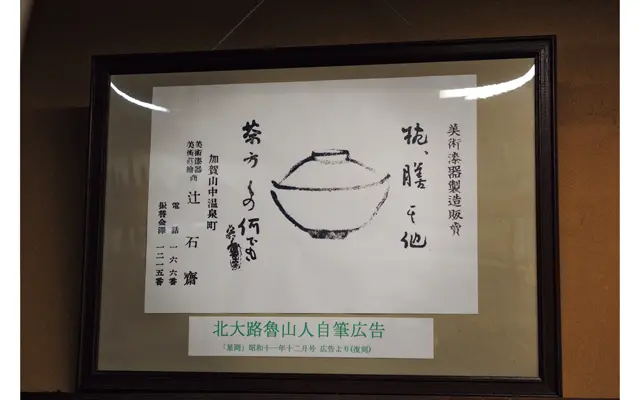 美術漆器製造販賣
椀、膳其他
何でも
加賀山中温泉町
美術漆器
美術蒔繪商
辻石齋
電話 一六六番
振替金澤 一二一五番
北大路魯山人自筆広告
「星岡」昭和十一年十二月号 広告より(復刻)